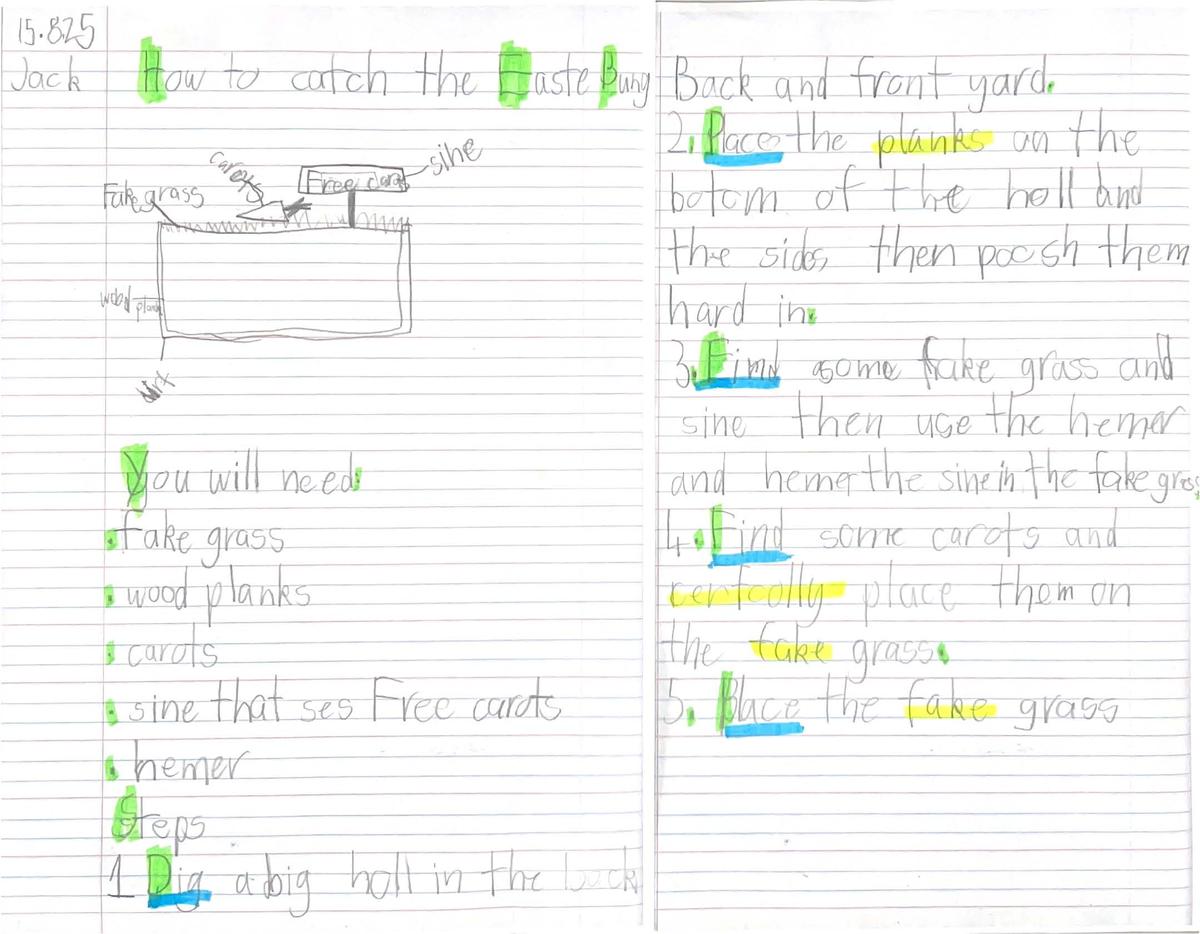 15.8.25
Jack
How to catch the Easte Buny
carots
Free carots
sine
Fake grass
wood plank
You will need:
fake grass
wood planks
carots
sine that ses Free carots
hemer
Steps
1 Dig a big holl in the back
Back and front yard.
2. Place the planks on the
botom of the holl and
the sides then poosh them
hard in.
3. Find some fake grass and
sine then use the hemer
and hemer the sine in the fake grass.
4. Find some carots and
cerfcolly place them on
the fake grass.
5. Blace the fake grass